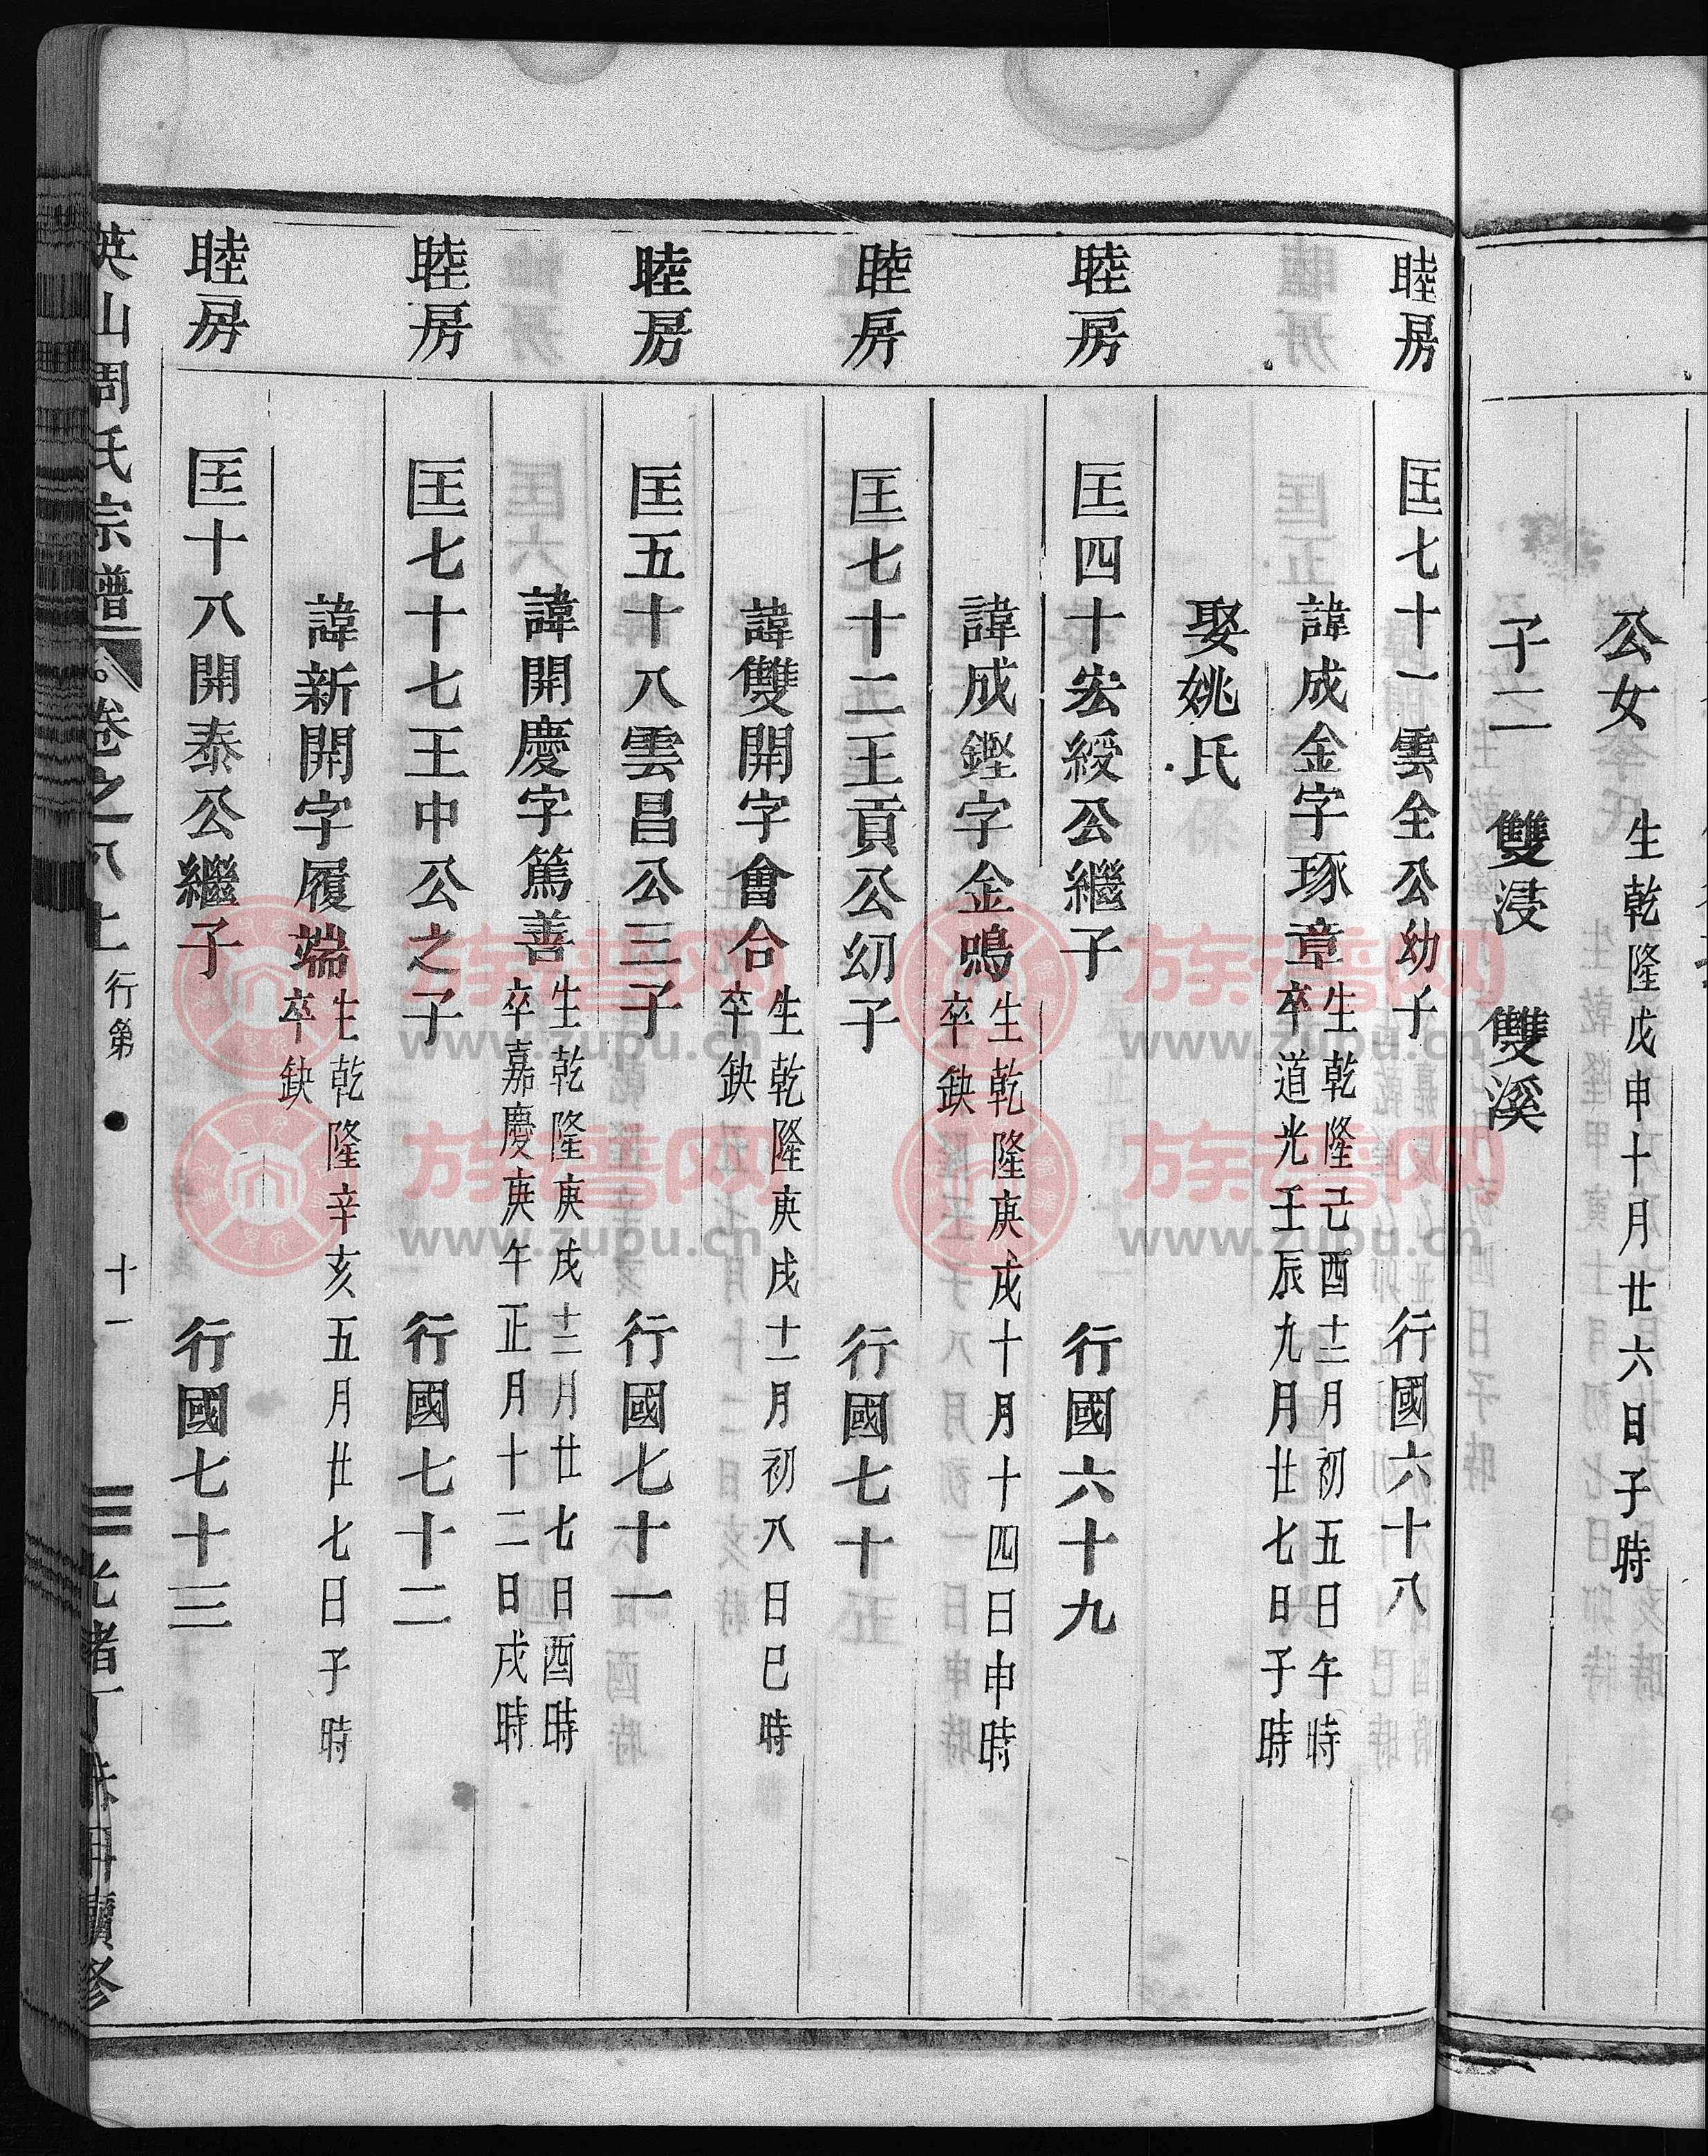 公女 生乾隆戊申十月廿六日子時
子二 雙浸 雙溪
睦房 匡七十一雲全公幼子 行國六十八
諱成金字琢章 生乾隆己酉十二月初五日午時
卒道光壬辰九月廿七日子時
娶姚氏
睦房 匡四十宏綬公繼子 行國六十九
諱成鏗字金鳴 生乾隆庚戌十月十四日申時
卒缺
睦房 匡七十二王貢公幼子 行國七十
諱雙開字會合 生乾隆庚戌十一月初八日巳時
卒缺
睦房 匡五十八雲昌公三子 行國七十一
諱開慶字篤善 生乾隆庚戌十二月廿七日酉時
卒嘉慶庚午正月十二日戌時
睦房 匡七十七王中公之子 行國七十二
諱新開字履端 生乾隆辛亥五月廿七日子時
卒缺
睦房 匡十八開泰公繼子 行國七十三
英山周氏宗譜 卷之八上 行第 十一 三 光緒丁未再續修
族譜网
www.zupu.cn
族譜网
www.zupu.cn
族譜网
www.zupu.cn
族譜网
www.zupu.cn